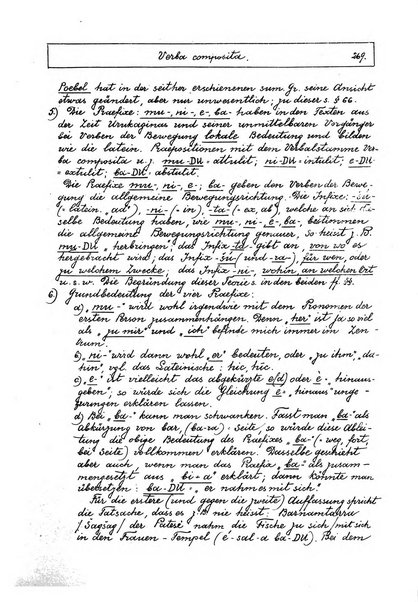 Verba composita. 269.
Poebel hat in der seither erschienenen sum. Gr. seine Ansicht
etwas geändert, aber nur unwesentlich; zu dieser s. § 66.
5) Die Praefixe: mu-, ni-, e-, ba- haben in den Texten aus
der Zeit Urukaginas und seiner unmittelbaren Vorgänger
bei Verben der Bewegung lokale Bedeutung und bilden
wie die latein. Praepositionen mit dem Verbalstamme Ver-
ba composita u. z. mu-DU = attulit; ni-DU = intulit; e-DU
= extulit; ba-DU = abstulit.
Die Praefixe mu-, ni-, e-, ba- geben den Verben der Bewe-
gung die allgemeine Bewegungsrichtung. Die Infixe: -šu-
(= latein. „ad"), ni- (= in) -ta- (= ex, ab), welche an sich die-
selbe Bedeutung haben, wie mu-, ni-, e-, ba-, bestimmen
die allgemeine Bewegungsrichtung genauer, so heisst z. B.
mu-DU „herbringen", das Infix ta- gibt an, von wo es
hergebracht wird; das Infix -šu- (und -ra-), für wen, oder
zu welchem Zwecke; das Infix -ni-, wohin, an welchen Ort
u. s. w. Die Begründung dieser Teorie s. in den beiden ff. H.
6) Grundbedeutung der vier Praefixe:
a) „mu-" wird wohl irgendwie mit dem Pronomen der
ersten Person zusammenhängen. Denn „her" ist ja so viel
als „zu mir" und „ich" befinde mich immer im Zen-
trum.
b) „ni-" wird dann wohl „er" bedeuten, oder „zu ihm", „da-
hin", vgl. das Lateinische: hic, hīc.
c) „e-" ist vielleicht das abgekürzte e(d) oder è- „hinaus-
geben", so würde sich die Gleichung e- = hinaus unge-
zwungen erklären lassen.
d) Bei „ba-" kann man schwanken. Fasst man „ba-" als
abkürzung von bar, (ba-ra) = seite, so würde diese Ablei-
tung die obige Bedeutung des Praefixes „ba-" (= weg, fort,
bei Seite) vollkommen erklären. Dasselbe geschieht
aber auch, wenn man das Praefix „ba-" als zusam-
mengesetzt aus „bi-a" erklärt; dann könnte man
übersetzen: ba-DU = „er nahm es mit sich".
Für die erstere (und gegen die zweite) Auffassung spricht
die Tatsache, dass es z. B. nie heisst: Barnamtarra
/Sagšag/ der Patesi nahm die Fische zu sich /mit sich
in den Frauen-Tempel (é-sal-a ba-DU). Bei dem